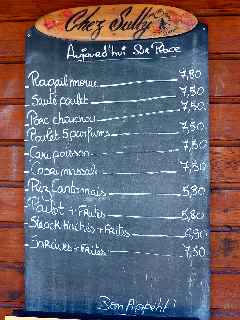 Chez Sully
Aujourd'hui Sur Place
Ragail morue 7,80
Sauté poulet 7,50
Porc chouchou 7,50
Poulet 5 parfums 7,50
Cari poisson 7,50
Cabri massalé 7,50
Riz Cantonnais 5,30
Poulet + Frites 5,80
Steack hachés + Frites 5,30
Sarcives + Frites 7,50
Bon Appétit!